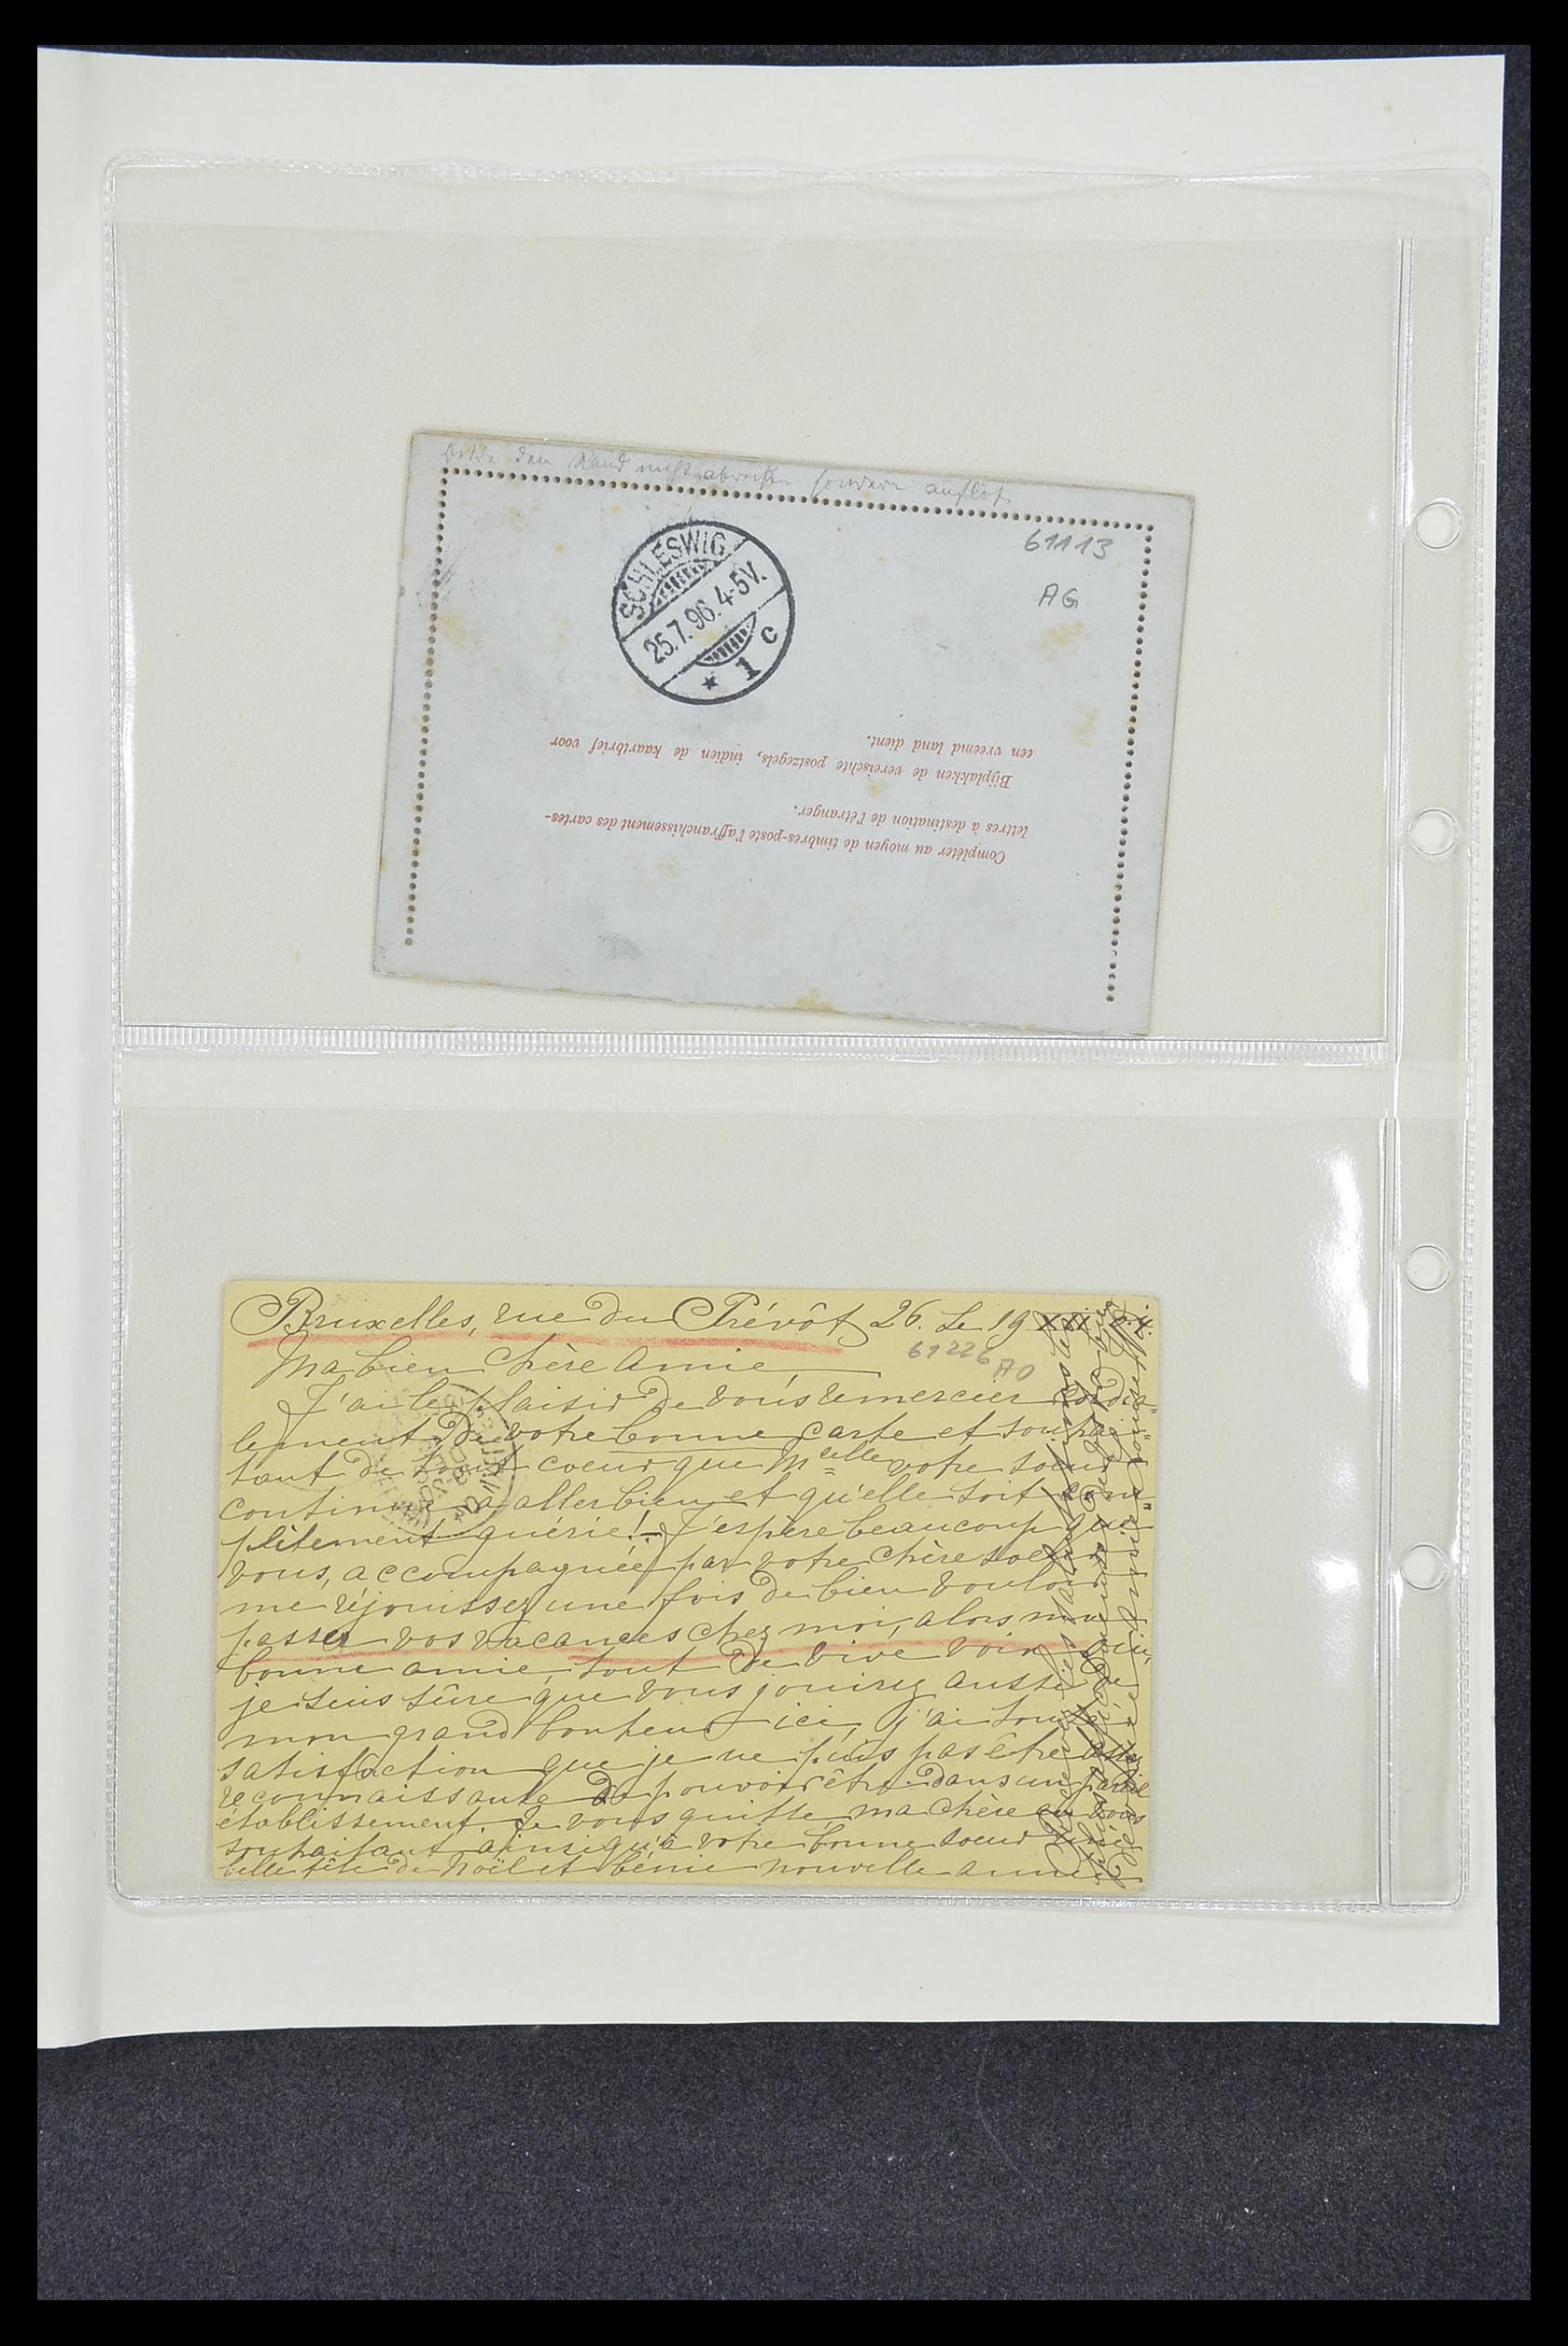 Bitte den Rand nicht abreißen sondern auflös.
61113
AG
SCHLESWIG
25.7.96.4-5V.
* 1 c
Compléter au moyen de timbres-poste l'affranchissement des cartes-
lettres à destination de l'étranger.
Bijplakken de vereischte postzegels, indien de kaartbrief voor
een vreemd land dient.
Bruxelles, rue du Prévôt 26. Le 19
61226
AO
Ma bien chère Amie,
J'ai le plaisir de vous remercier cordia=
lement de votre bonne carte et souhai=
tant de tout coeur que Melle votre soeur
continue à aller bien et qu'elle soit com=
plètement guérie! J'espère beaucoup que
vous, accompagnée par votre chère soeur
me réjouissez une fois de bien vouloir
passer vos vacances chez moi, alors ma
bonne amie, tout de vive voix oui,
je suis sûre que vous jouirez aussi de
mon grand bonheur ici, j'ai toute
satisfaction que je ne puis pas être assez
reconnaissante de pouvoir être dans un pareil
établissement. Je vous quitte ma chère en vous
souhaitant ainsi qu'à votre bonne soeur une
belle fête de Noël et bénie nouvelle année